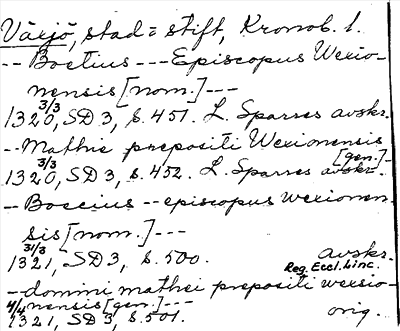 Växjö, stad = stift, Kronob. l.
-- Boetius --- Episcopus Wexio-
nensis [nom.] ---
1320 3/3, SD 3, s. 451. L. Sparres avskr.
-- Mathie prepositi Wexionensis
[gen.] --
1320 3/3, SD 3, s. 452. L. Sparres avskr.
-- Boecius -- episcopus wexionen
sis [nom.] ---
1321 31/3, SD 3, s. 500. avskr.
Reg. Eccl. Linc.
-- domini mathei prepositi wexsio-
nensis [gen.] ---
1321 4/4, SD 3, s. 501. orig.